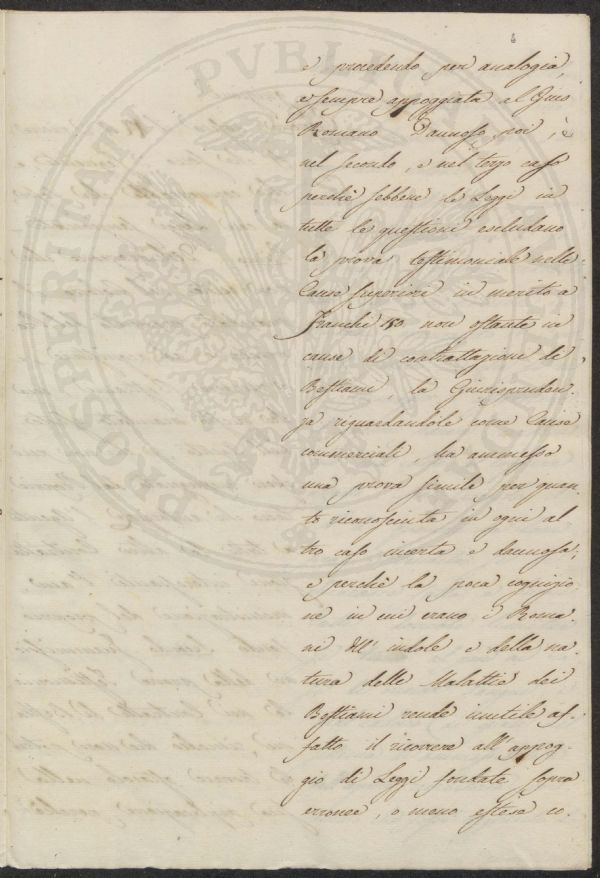 e procedendo per analogia,
è sempre appoggiata al Gius
Romano Dannosa poi, è
nel secondo, e nel terzo caso
perchè sebbene le Leggi in
tutte le questioni escludano
la prova testimoniale nelle
Cause superiori in merito a
franchi 150 non ostante in
cause di contrattazione de
Bestiami, la Giurispruden-
za riguardandole come Cause
commerciali, ha ammesso
una prova simile per quan-
to riconosciuta in ogni al
tro caso incerta e dannosa;
e perchè la poca cognizio
ne in cui erano i Roma
ni dell' indole e della na-
tura delle Malattie dei
Bestiami rende inutile af-
fatto il ricorrere all' appog-
gio di Leggi fondate sopra
erronee, o meno estese co-